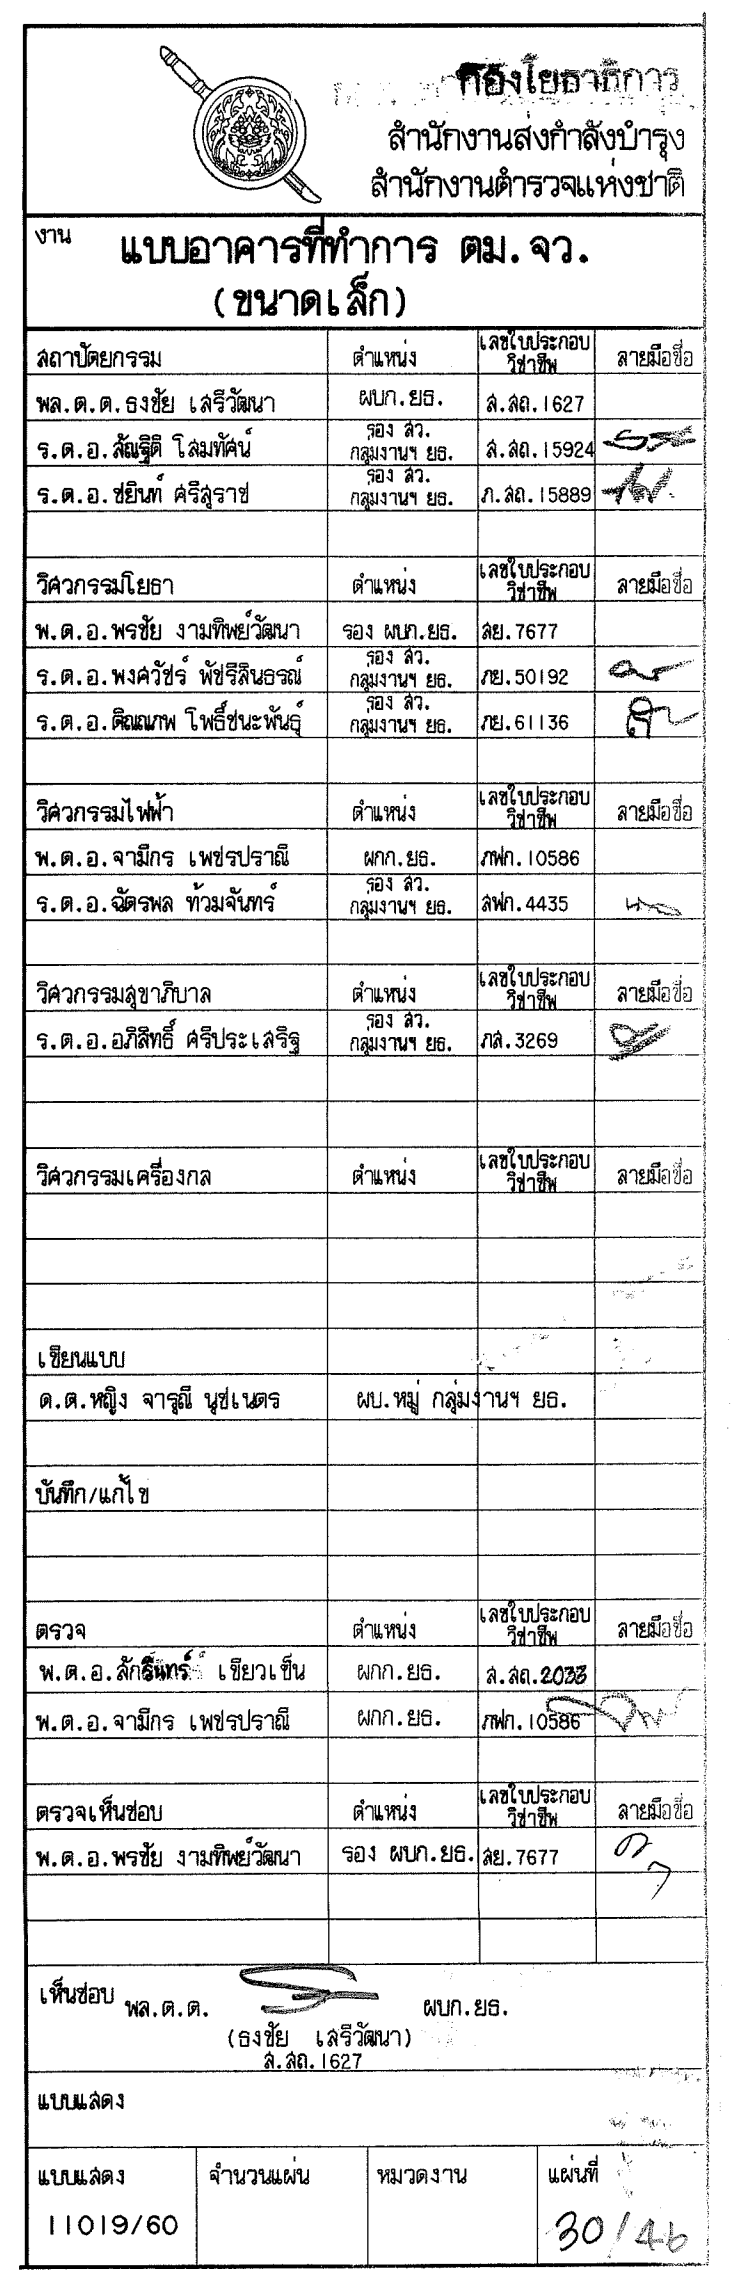 กองโยธาธิการ
สำนักงานส่งกำลังบำรุง
สำนักงานตำรวจแห่งชาติ
งาน แบบอาคารที่ทำการ ตม.จว.
(ขนาดเล็ก)
สถาปัตยกรรม ตำแหน่ง เลขใบประกอบวิชาชีพ ลายมือชื่อ
พล.ต.ต.ธงชัย เสรีวัฒนา ผบก.ยธ. ส.สถ.1627
ร.ต.อ.สัณฐิติ โสมทัศน์ รอง สว. กลุ่มงานฯ ยธ. ส.สถ.15924
ร.ต.อ.ชยินท์ ศรีสุราช รอง สว. กลุ่มงานฯ ยธ. ภ.สถ.15889
วิศวกรรมโยธา ตำแหน่ง เลขใบประกอบวิชาชีพ ลายมือชื่อ
พ.ต.อ.พรชัย งามทิพย์วัฒนา รอง ผบก.ยธ. สย.7677
ร.ต.อ.พงศวัชร์ พัชรีสินธรณ์ รอง สว. กลุ่มงานฯ ยธ. ภย.50192
ร.ต.อ.ติณณภพ โพธิ์ชนะพันธุ์ รอง สว. กลุ่มงานฯ ยธ. ภย.61136
วิศวกรรมไฟฟ้า ตำแหน่ง เลขใบประกอบวิชาชีพ ลายมือชื่อ
พ.ต.อ.จามีกร เพชรปราณี ผกก.ยธ. ภฟก.10586
ร.ต.อ.ฉัตรพล ท้วมจันทร์ รอง สว. กลุ่มงานฯ ยธ. สฟก.4435
วิศวกรรมสุขาภิบาล ตำแหน่ง เลขใบประกอบวิชาชีพ ลายมือชื่อ
ร.ต.อ.อภิสิทธิ์ ศรีประเสริฐ รอง สว. กลุ่มงานฯ ยธ. ภส.3269
วิศวกรรมเครื่องกล ตำแหน่ง เลขใบประกอบวิชาชีพ ลายมือชื่อ
เขียนแบบ
ด.ต.หญิง จารุณี นุชเนตร ผบ.หมู่ กลุ่มงานฯ ยธ.
บันทึก/แก้ไข
ตรวจ ตำแหน่ง เลขใบประกอบวิชาชีพ ลายมือชื่อ
พ.ต.อ. เขียวเข็น ผกก.ยธ. ส.สถ.2033
พ.ต.อ.จามีกร เพชรปราณี ผกก.ยธ. ภฟก.10586
ตรวจเห็นชอบ ตำแหน่ง เลขใบประกอบวิชาชีพ ลายมือชื่อ
พ.ต.อ.พรชัย งามทิพย์วัฒนา รอง ผบก.ยธ. สย.7677
เห็นชอบ พล.ต.ต. ผบก.ยธ.
(ธงชัย เสรีวัฒนา)
ส.สถ.1627
แบบแสดง
แบบแสดง จำนวนแผ่น หมวดงาน แผ่นที่
11019/60 30/46